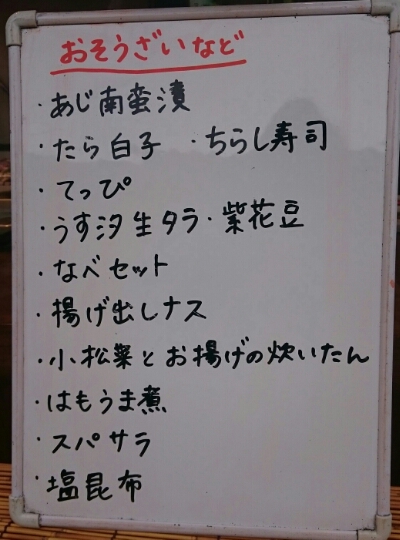 おそうざいなど
・あじ南蛮漬
・たら白子 ・ちらし寿司
・てっぴ
・うす汐生タラ・紫花豆
・なべセット
・揚げ出しナス
・小松菜とお揚げの炊いたん
・はもうま煮
・スパサラ
・塩昆布